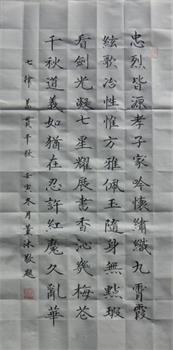 忠烈皆源孝子家吟懷綉織九霄霞
絃歌冶性惟方雅佩玉隨身無點瑕
看劍光凝七星耀展書香沁幾梅花
千秋道義如猶在忍許紅魔久亂華
七律 義貫千秋 壬寅冬月 沐敬題